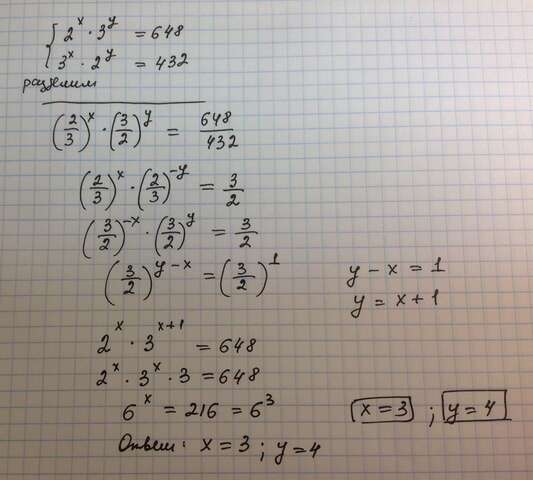 { 2^x · 3^y = 648
3^x · 2^y = 432
разделим
(2/3)^x · (3/2)^y = 648/432
(2/3)^x · (2/3)^-y = 3/2
(3/2)^-x · (3/2)^y = 3/2
(3/2)^y-x = (3/2)^1
y - x = 1
y = x + 1
2^x · 3^x+1 = 648
2^x · 3^x · 3 = 648
6^x = 216 = 6^3
x = 3 ; y = 4
Ответ: x = 3 ; y = 4